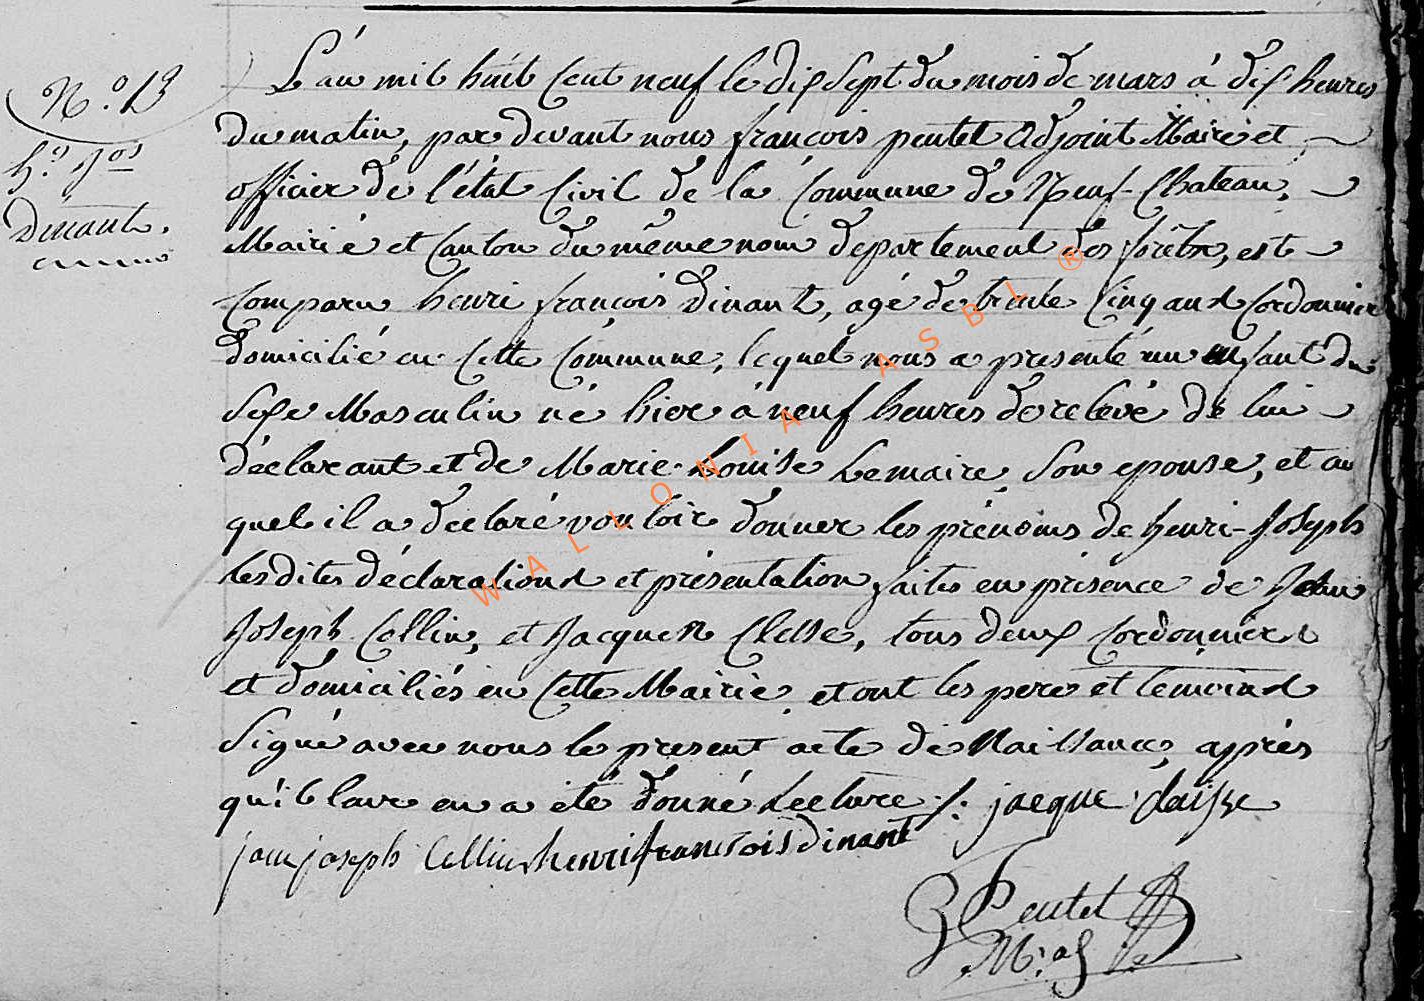 N.o 13
h.i J.os
Dinant.
L'an mil huit cent neuf le dix sept du mois de mars à dix heures
du matin, par devant nous françois pentel adjoint Maire et
officier de l'état Civil de la Commune de Neuf-Chateau,
Mairie et Canton du même nom departement des forêts, est
Comparu henri françois Dinant, agé de trente Cinq ans Cordonnier
domicilié en Cette Commune, lequel nous a presenté un enfant du
Sexe Masculin né hier à neuf heures de relevé de lui
déclarant et de Marie-Louise Lemaire Son epouse, et au
quel il a déclaré vouloir donner les prénoms de henri-Joseph
les dites déclarations et présentation faites en présence de Jean
Joseph Collin, et Jacques Clesse, tous deux Cordonniers
et domiciliés en Cette Mairie, et ont les pere et témoins
Signé avec nous le present acte de Naissance, après
qu'il leur en a été donné Lecture ./. jacque claisse
jean joseph Collin henri francois dinant
Pentel
M: adj
WALLONIA ASBL ®